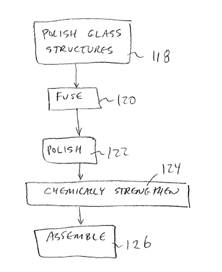 POLISH GLASS
STRUCTURES
118
FUSE
120
POLISH
122
124
CHEMICALLY STRENGTHEN
ASSEMBLE
126